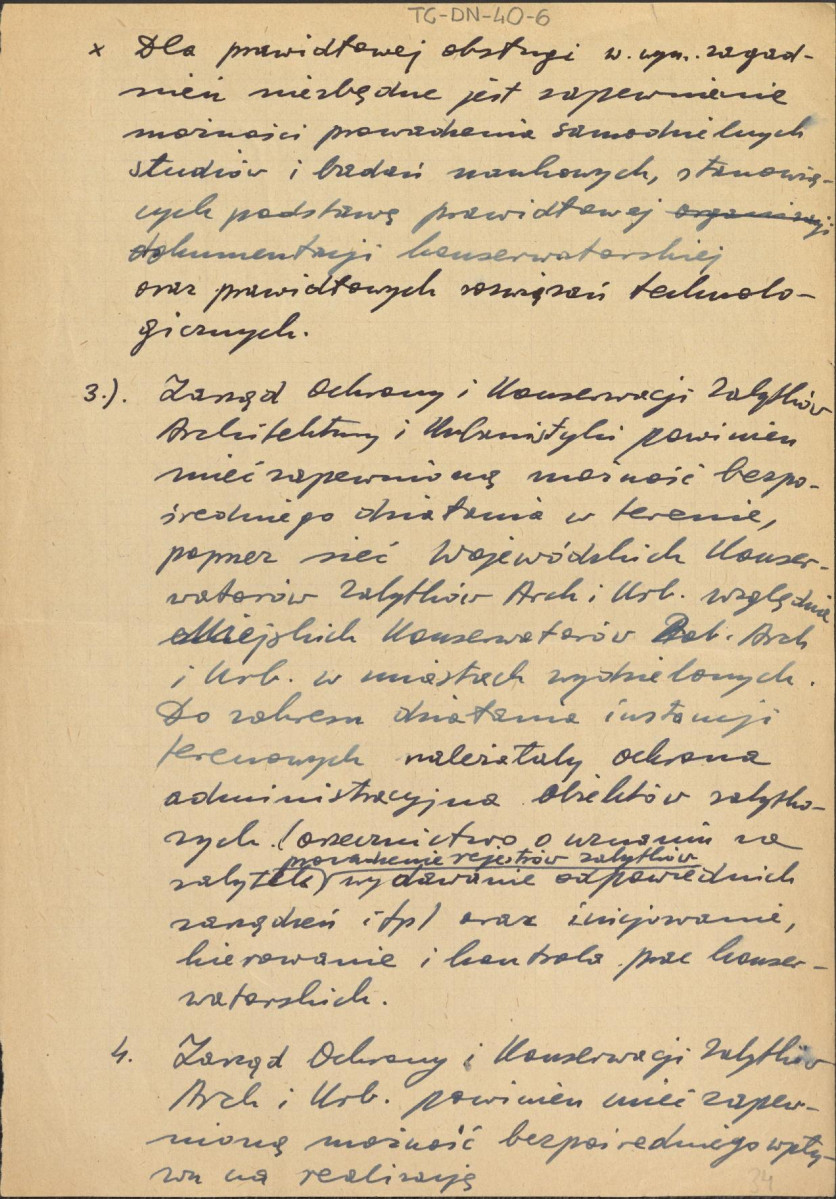 TG-DN-40-6
x Dla prawidłowej obsługi w. wym. zagad-
nień niezbędne jest zapewnienie
możności prowadzenia samodzielnych
studiów i badań naukowych, stanowią-
cych podstawę prawidłowej organizacji
dokumentacji konserwatorskiej
oraz prawidłowych rozwiązań technolo-
gicznych.
3.). Zarząd Ochrony i Konserwacji Zabytków
Architektury i Urbanistyki powinien
mieć zapewnioną możność bezpo-
średniego działania w terenie,
poprzez sieć Wojewódzkich Konser-
watorów Zabytków Arch i Urb. względnie
Miejskich Konserwatorów Zab. Arch
i Urb. w miastach wydzielonych.
Do zakresu działania instancji
terenowych należałaby ochrona
administracyjna obiektów zabytko-
wych (orzecznictwo o uznaniu za
prowadzenie rejestrów zabytków
zabytek) wydawanie odpowiednich
zarządzeń itp) oraz inicjowanie,
kierowanie i kontrola prac konser-
watorskich.
4. Zarząd Ochrony i Konserwacji Zabytków
Arch i Urb. powinien mieć zapew-
nioną możność bezpośredniego wpły-
wu na realizację
34